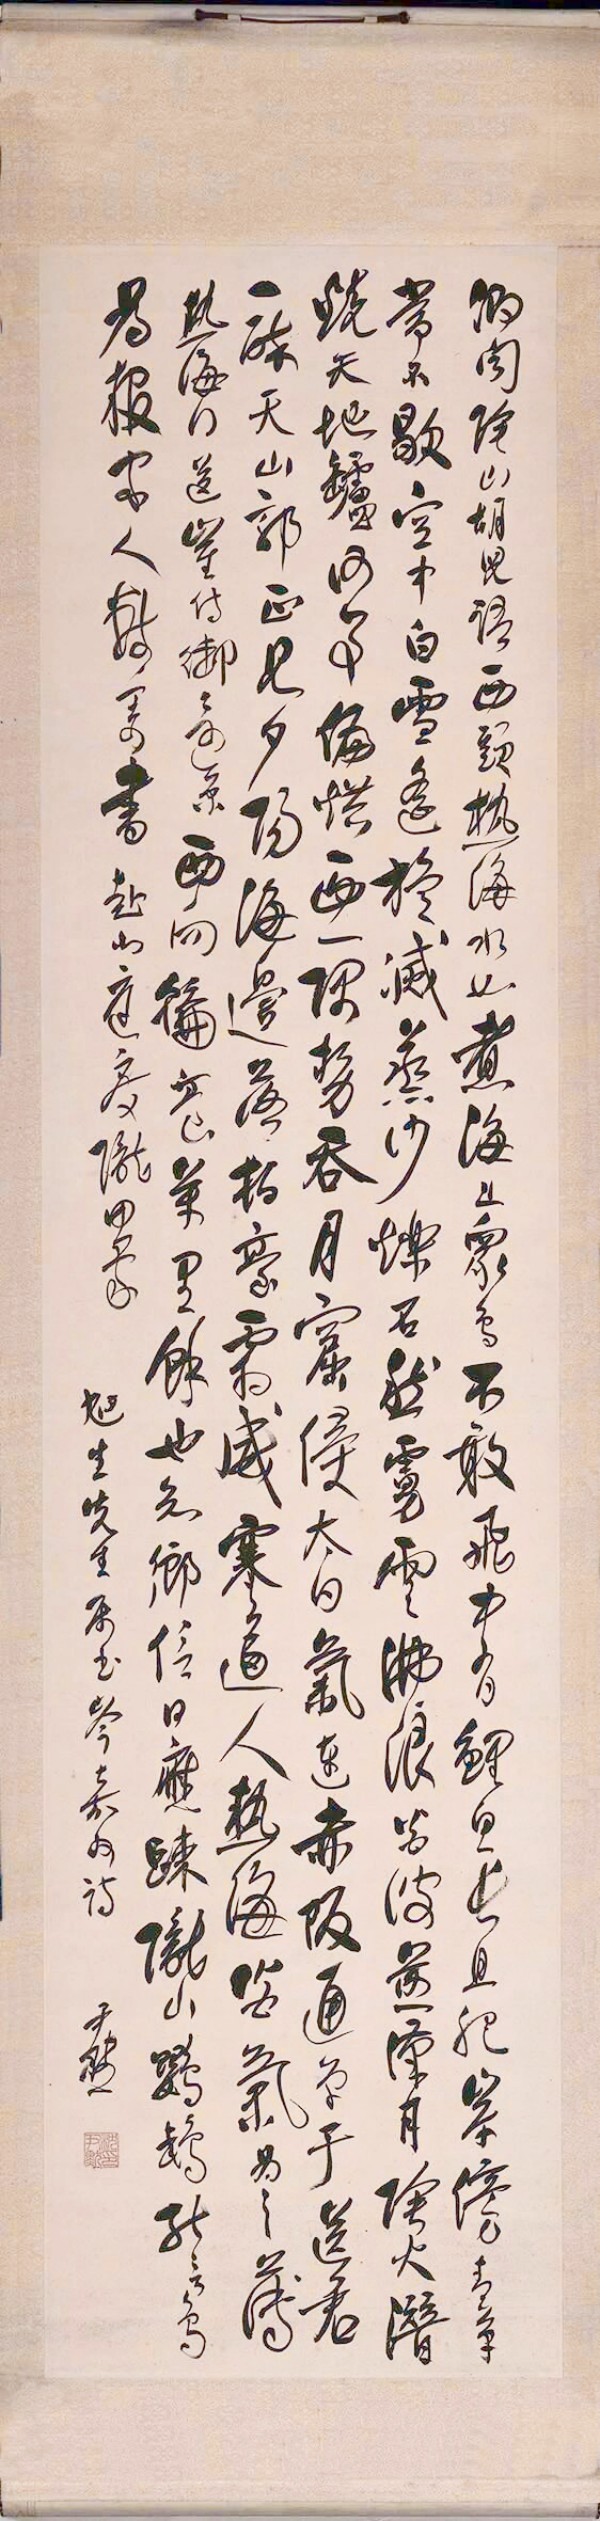 側聞陰山胡兒語西頭熱海水如煮海上衆鳥不敢飛中有鯉魚長且肥岸傍青草
常不歇空中白雪遙旋滅蒸沙爍石然虜雲沸浪炎波煎漢月陰火潛
燒天地鑪何事偏烘西一隅勢吞月窟侵太白氣連赤阪通單于送君
一醉天山郭正見夕陽海邊落柏臺霜威寒逼人熱海炎氣為之薄
熱海行送崔侍御還京 西向輪臺萬里餘也知鄉信日應疎隴山鸚鵡能言鳥
為報家人數寄書 赴北庭度隴思家
旭生先生屬書岑嘉州詩 尹默